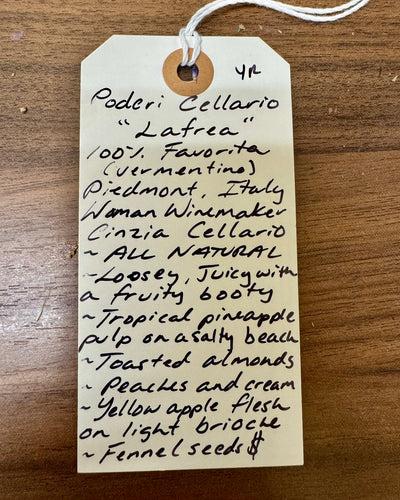 YR
Poderi Cellario
"Lafrea"
100% Favorita
(vermentino)
Piedmont, Italy
Woman Winemaker
Cinzia Cellario
~ ALL NATURAL
~ Loosey, Juicy with
a fruity booty
~ Tropical pineapple
pulp on a salty beach
~ Toasted almonds
~ Peaches and cream
~ Yellow apple flesh
on light brioche
~ Fennel seeds $